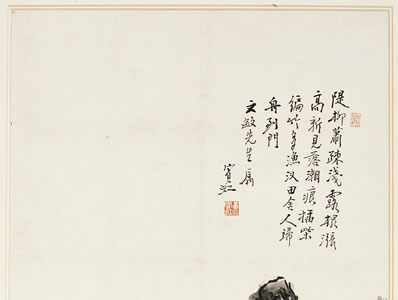 隄柳蕭疎淺露根漲
高新見落潮痕插柴
編竹多漁汊田舍人歸
舟到門
文敏先生屬
寶熙